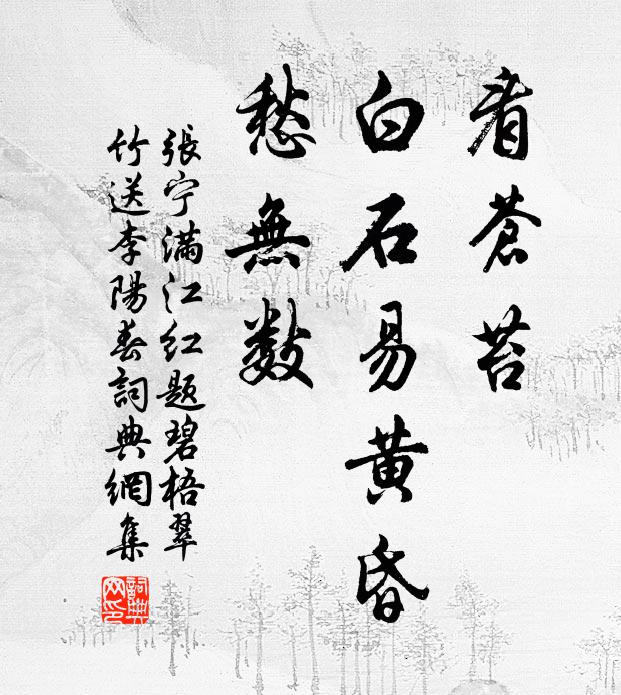 看蒼苔
白石易黄昏
愁無数
張宁満江红题碧梧翠
竹送李陽春詞典網集
詞典网印